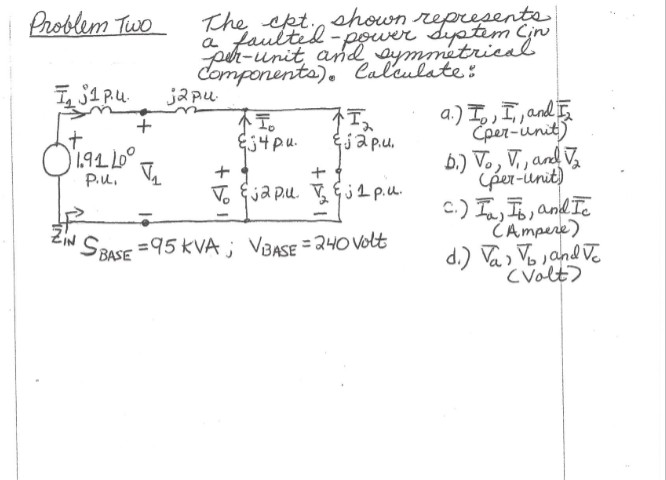 Problem Two
The ckt. shown represents
a faulted-power system (in
per-unit and symmetrical
components). Calculate:
Ī₁ j1 p.u.
j2 p.u.
+
+
1.91 ∠0°
p.u.
V̄₁
−
Z̄IN
Ī₀
j4 p.u.
+
V̄₀
j2 p.u.
−
Ī₂
j2 p.u.
+
V̄₂
j1 p.u.
−
SBASE = 95 KVA ; VBASE = 240 Volt
a.) Ī₀, Ī₁, and Ī₂
(per-unit)
b.) V̄₀, V̄₁, and V̄₂
(per-unit)
c.) Īa, Īb, and Īc
(Ampere)
d.) V̄a, V̄b, and V̄c
(Volt)